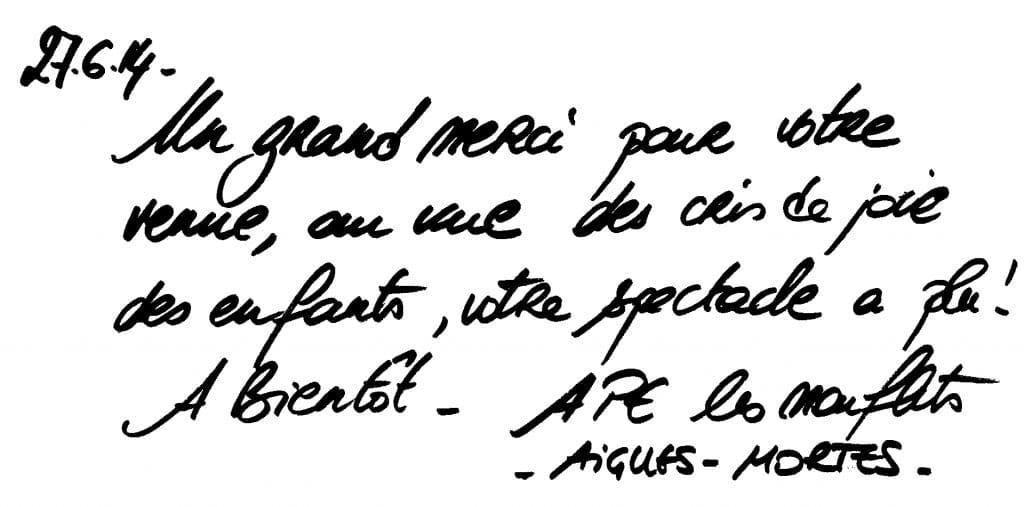 27.6.14-
Un grand merci pour votre
venue, au vue des cris de joie
des enfants, votre spectacle a plu!
A Bientôt - APE les mouflets
- AIGUES - MORTES -